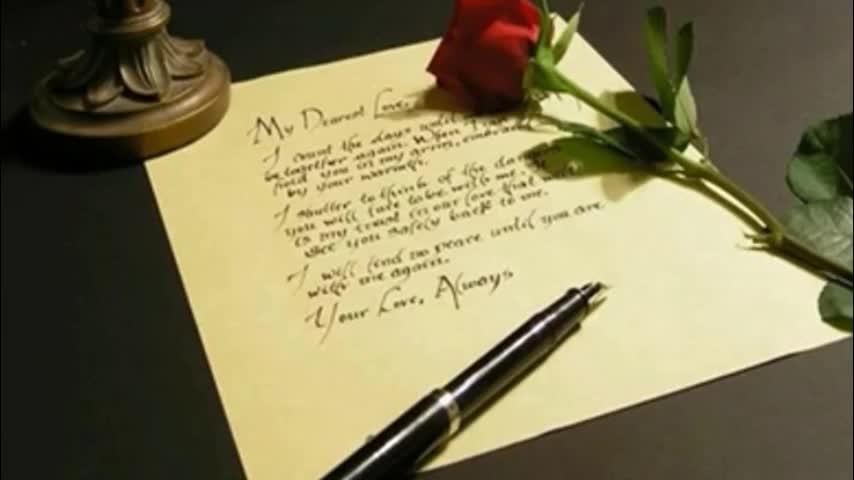 My Dearest Love,
I count the days until
be together again. When I can
hold you in my arms, embraced
by your warmth.
I shutter to think of the
you will take with me. It
is my trust in our love that will
see you safely back to me.
I will find no peace until you are
with me again.
Your Love, Always